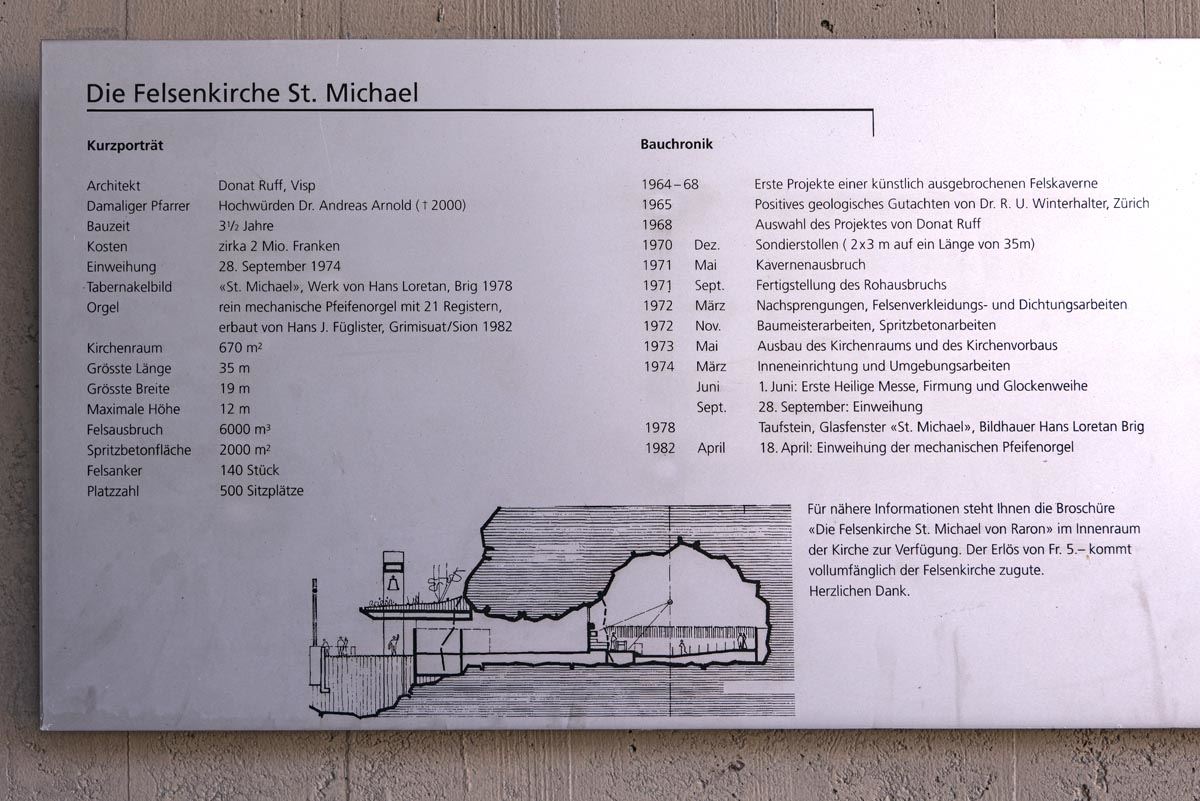 Die Felsenkirche St. Michael
Kurzporträt
Architekt Donat Ruff, Visp
Damaliger Pfarrer Hochwürden Dr. Andreas Arnold († 2000)
Bauzeit 3½ Jahre
Kosten zirka 2 Mio. Franken
Einweihung 28. September 1974
Tabernakelbild «St. Michael», Werk von Hans Loretan, Brig 1978
Orgel rein mechanische Pfeifenorgel mit 21 Registern,
erbaut von Hans J. Füglister, Grimisuat/Sion 1982
Kirchenraum 670 m²
Grösste Länge 35 m
Grösste Breite 19 m
Maximale Höhe 12 m
Felsausbruch 6000 m³
Spritzbetonfläche 2000 m²
Felsanker 140 Stück
Platzzahl 500 Sitzplätze
Bauchronik
1964–68 Erste Projekte einer künstlich ausgebrochenen Felskaverne
1965 Positives geologisches Gutachten von Dr. R. U. Winterhalter, Zürich
1968 Auswahl des Projektes von Donat Ruff
1970 Dez. Sondierstollen ( 2x3 m auf ein Länge von 35m)
1971 Mai Kavernenausbruch
1971 Sept. Fertigstellung des Rohausbruchs
1972 März Nachsprengungen, Felsenverkleidungs- und Dichtungsarbeiten
1972 Nov. Baumeisterarbeiten, Spritzbetonarbeiten
1973 Mai Ausbau des Kirchenraums und des Kirchenvorbaus
1974 März Inneneinrichtung und Umgebungsarbeiten
Juni 1. Juni: Erste Heilige Messe, Firmung und Glockenweihe
Sept. 28. September: Einweihung
1978 Taufstein, Glasfenster «St. Michael», Bildhauer Hans Loretan Brig
1982 April 18. April: Einweihung der mechanischen Pfeifenorgel
Für nähere Informationen steht Ihnen die Broschüre
«Die Felsenkirche St. Michael von Raron» im Innenraum
der Kirche zur Verfügung. Der Erlös von Fr. 5.– kommt
vollumfänglich der Felsenkirche zugute.
Herzlichen Dank.